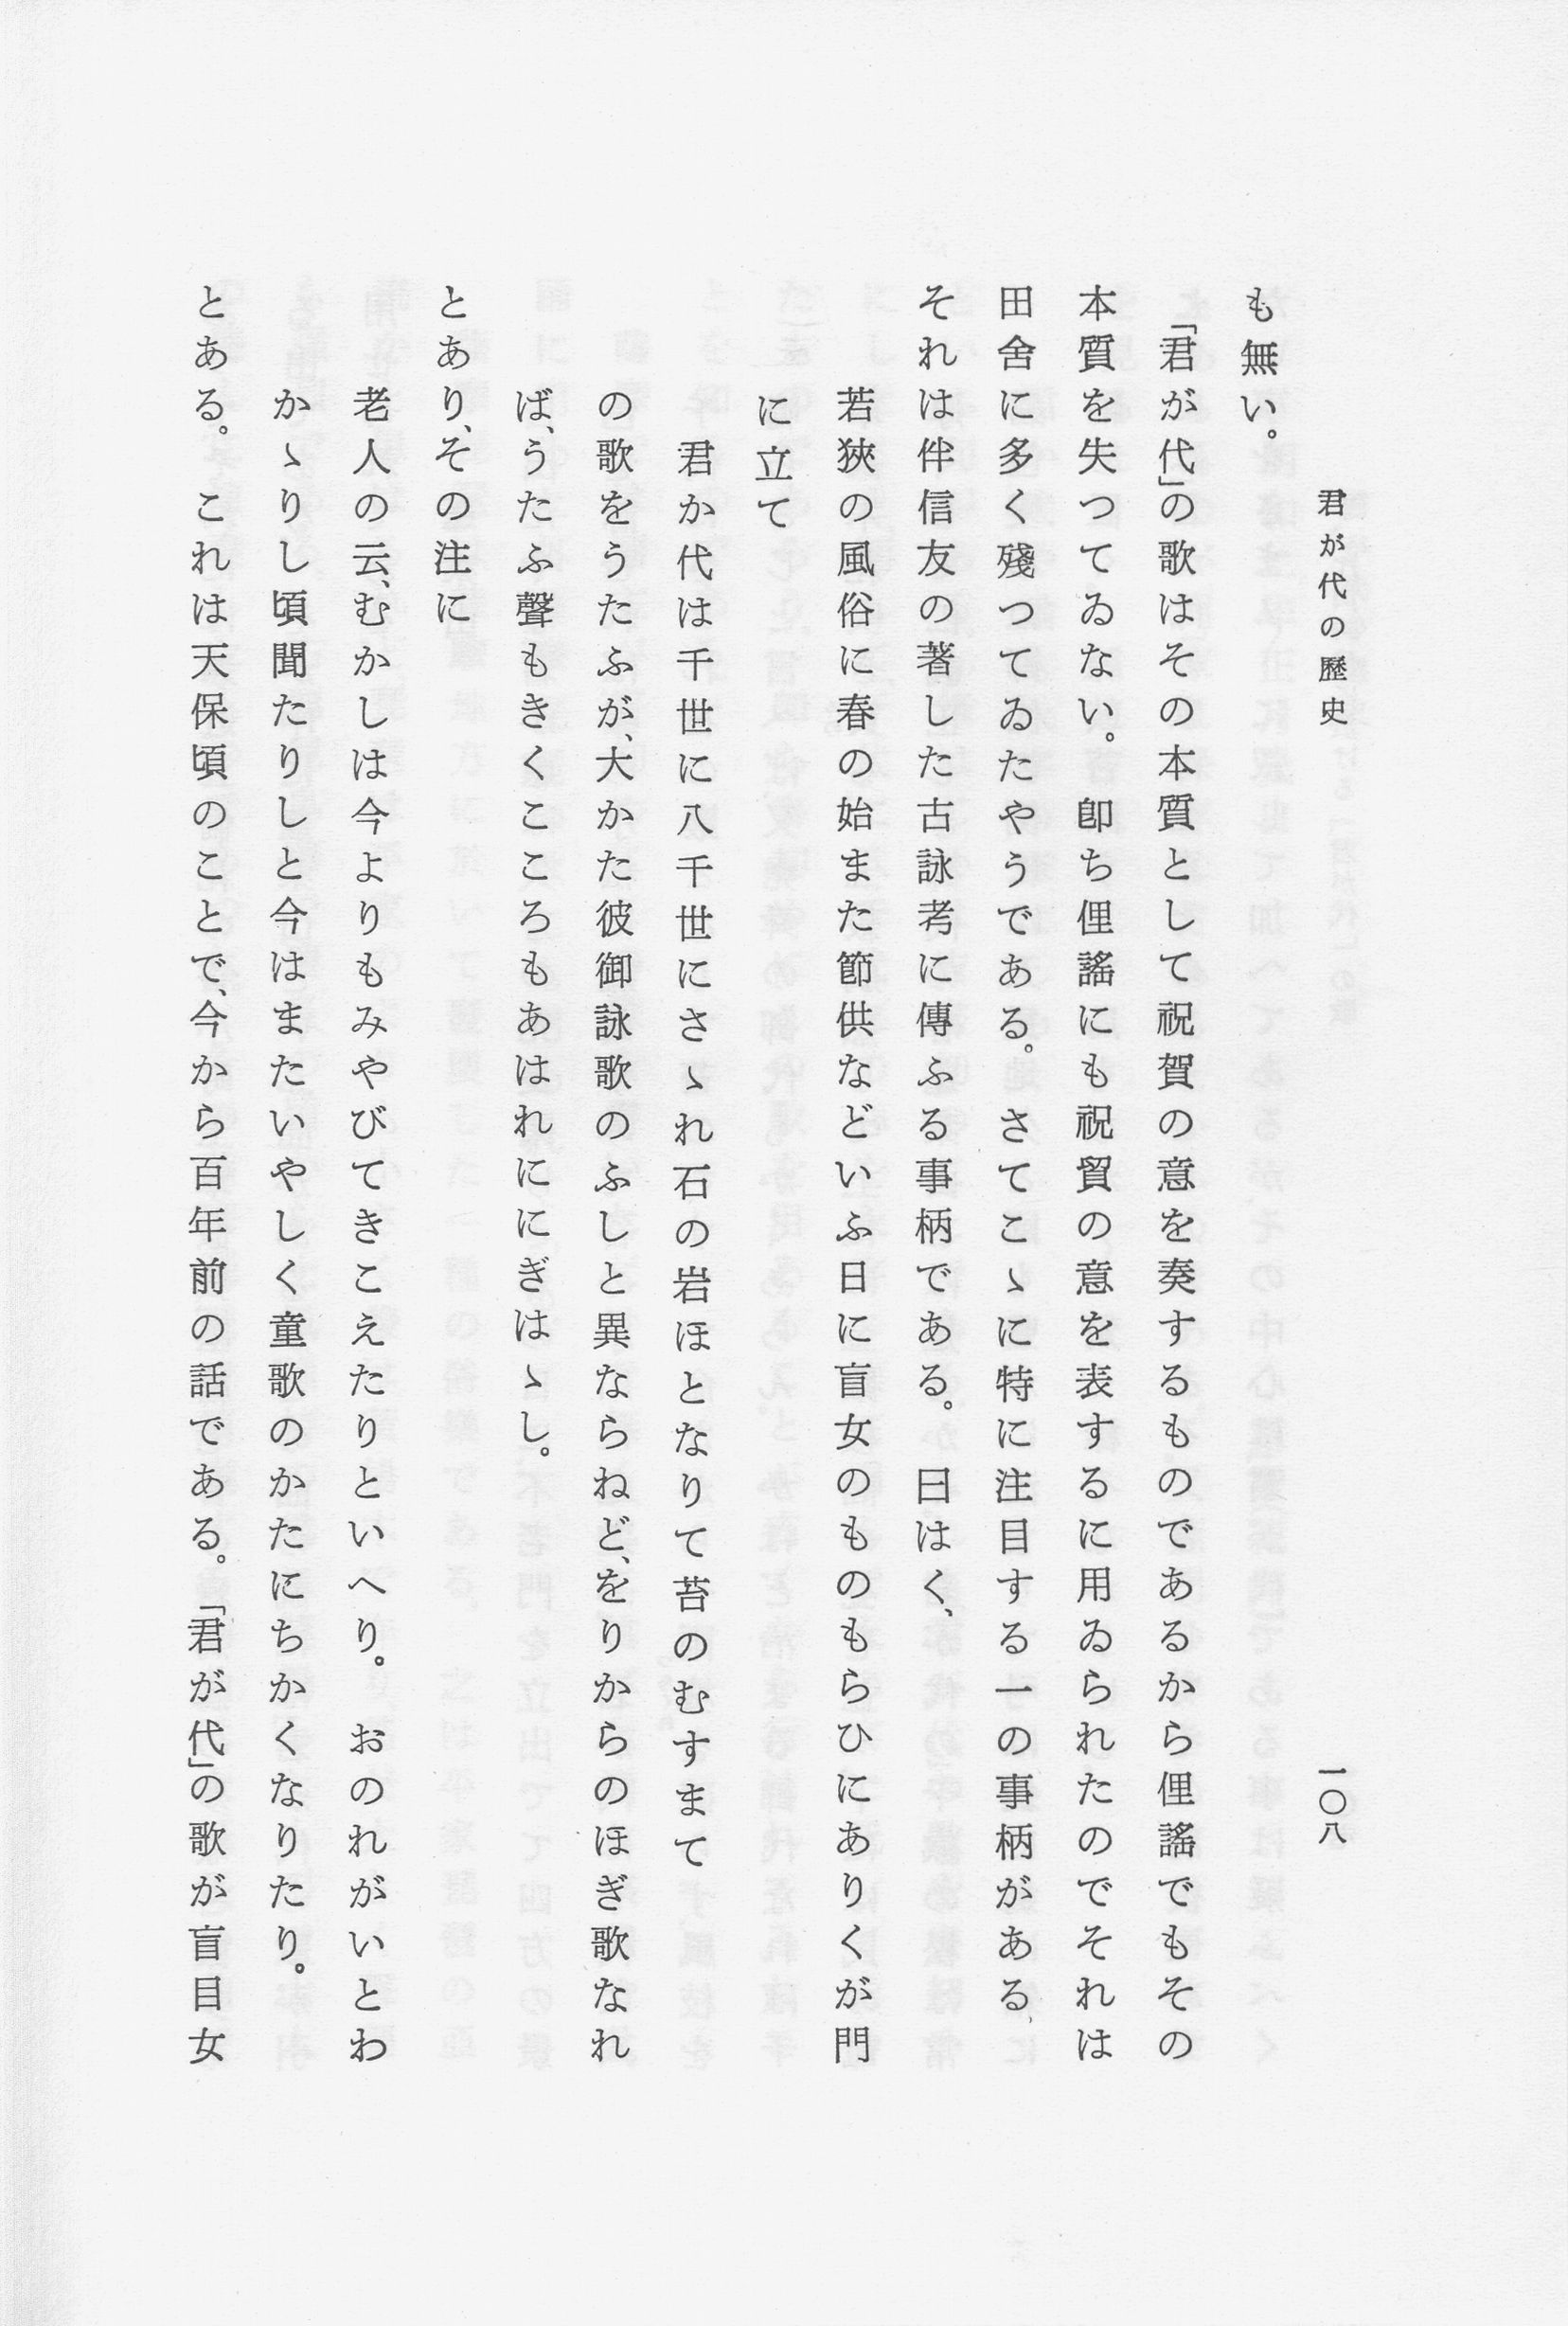 君が代の歷史
一〇八
も無い。
「君が代」の歌はその本質として祝賀の意を奏するものであるから俚謠でもその
本質を失つてゐない。卽ち俚謠にも祝賀の意を表するに用ゐられたのでそれは
田舍に多く殘つてゐたやうである。さてこゝに特に注目する一の事柄がある、
それは伴信友の著した古詠考に傳ふる事柄である。曰はく、
若狹の風俗に春の始また節供などいふ日に盲女のものもらひにありくが門
に立て
君か代は千世に八千世にさゝれ石の岩ほとなりて苔のむすまて
の歌をうたふが、大かた彼御詠歌のふしと異ならねど、をりからのほぎ歌なれ
ば、うたふ聲もきくこころもあはれににぎはゝし。
とあり、その注に
老人の云、むかしは今よりもみやびてきこえたりといへり。おのれがいとわ
かゝりし頃聞たりしと今はまたいやしく童歌のかたにちかくなりたり。
とある。これは天保頃のことで、今から百年前の話である。「君が代」の歌が盲目女